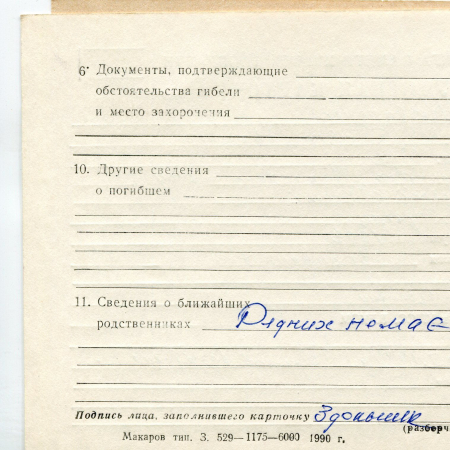 6. Документы, подтверждающие
обстоятельства гибели
и место захоронения
10. Другие сведения
о погибшем
11. Сведения о ближайших
родственниках Рідних немає
Подпись лица, заполнившего карточку
(разборч
Макаров тип. З. 529—1175—6000 1990 г.